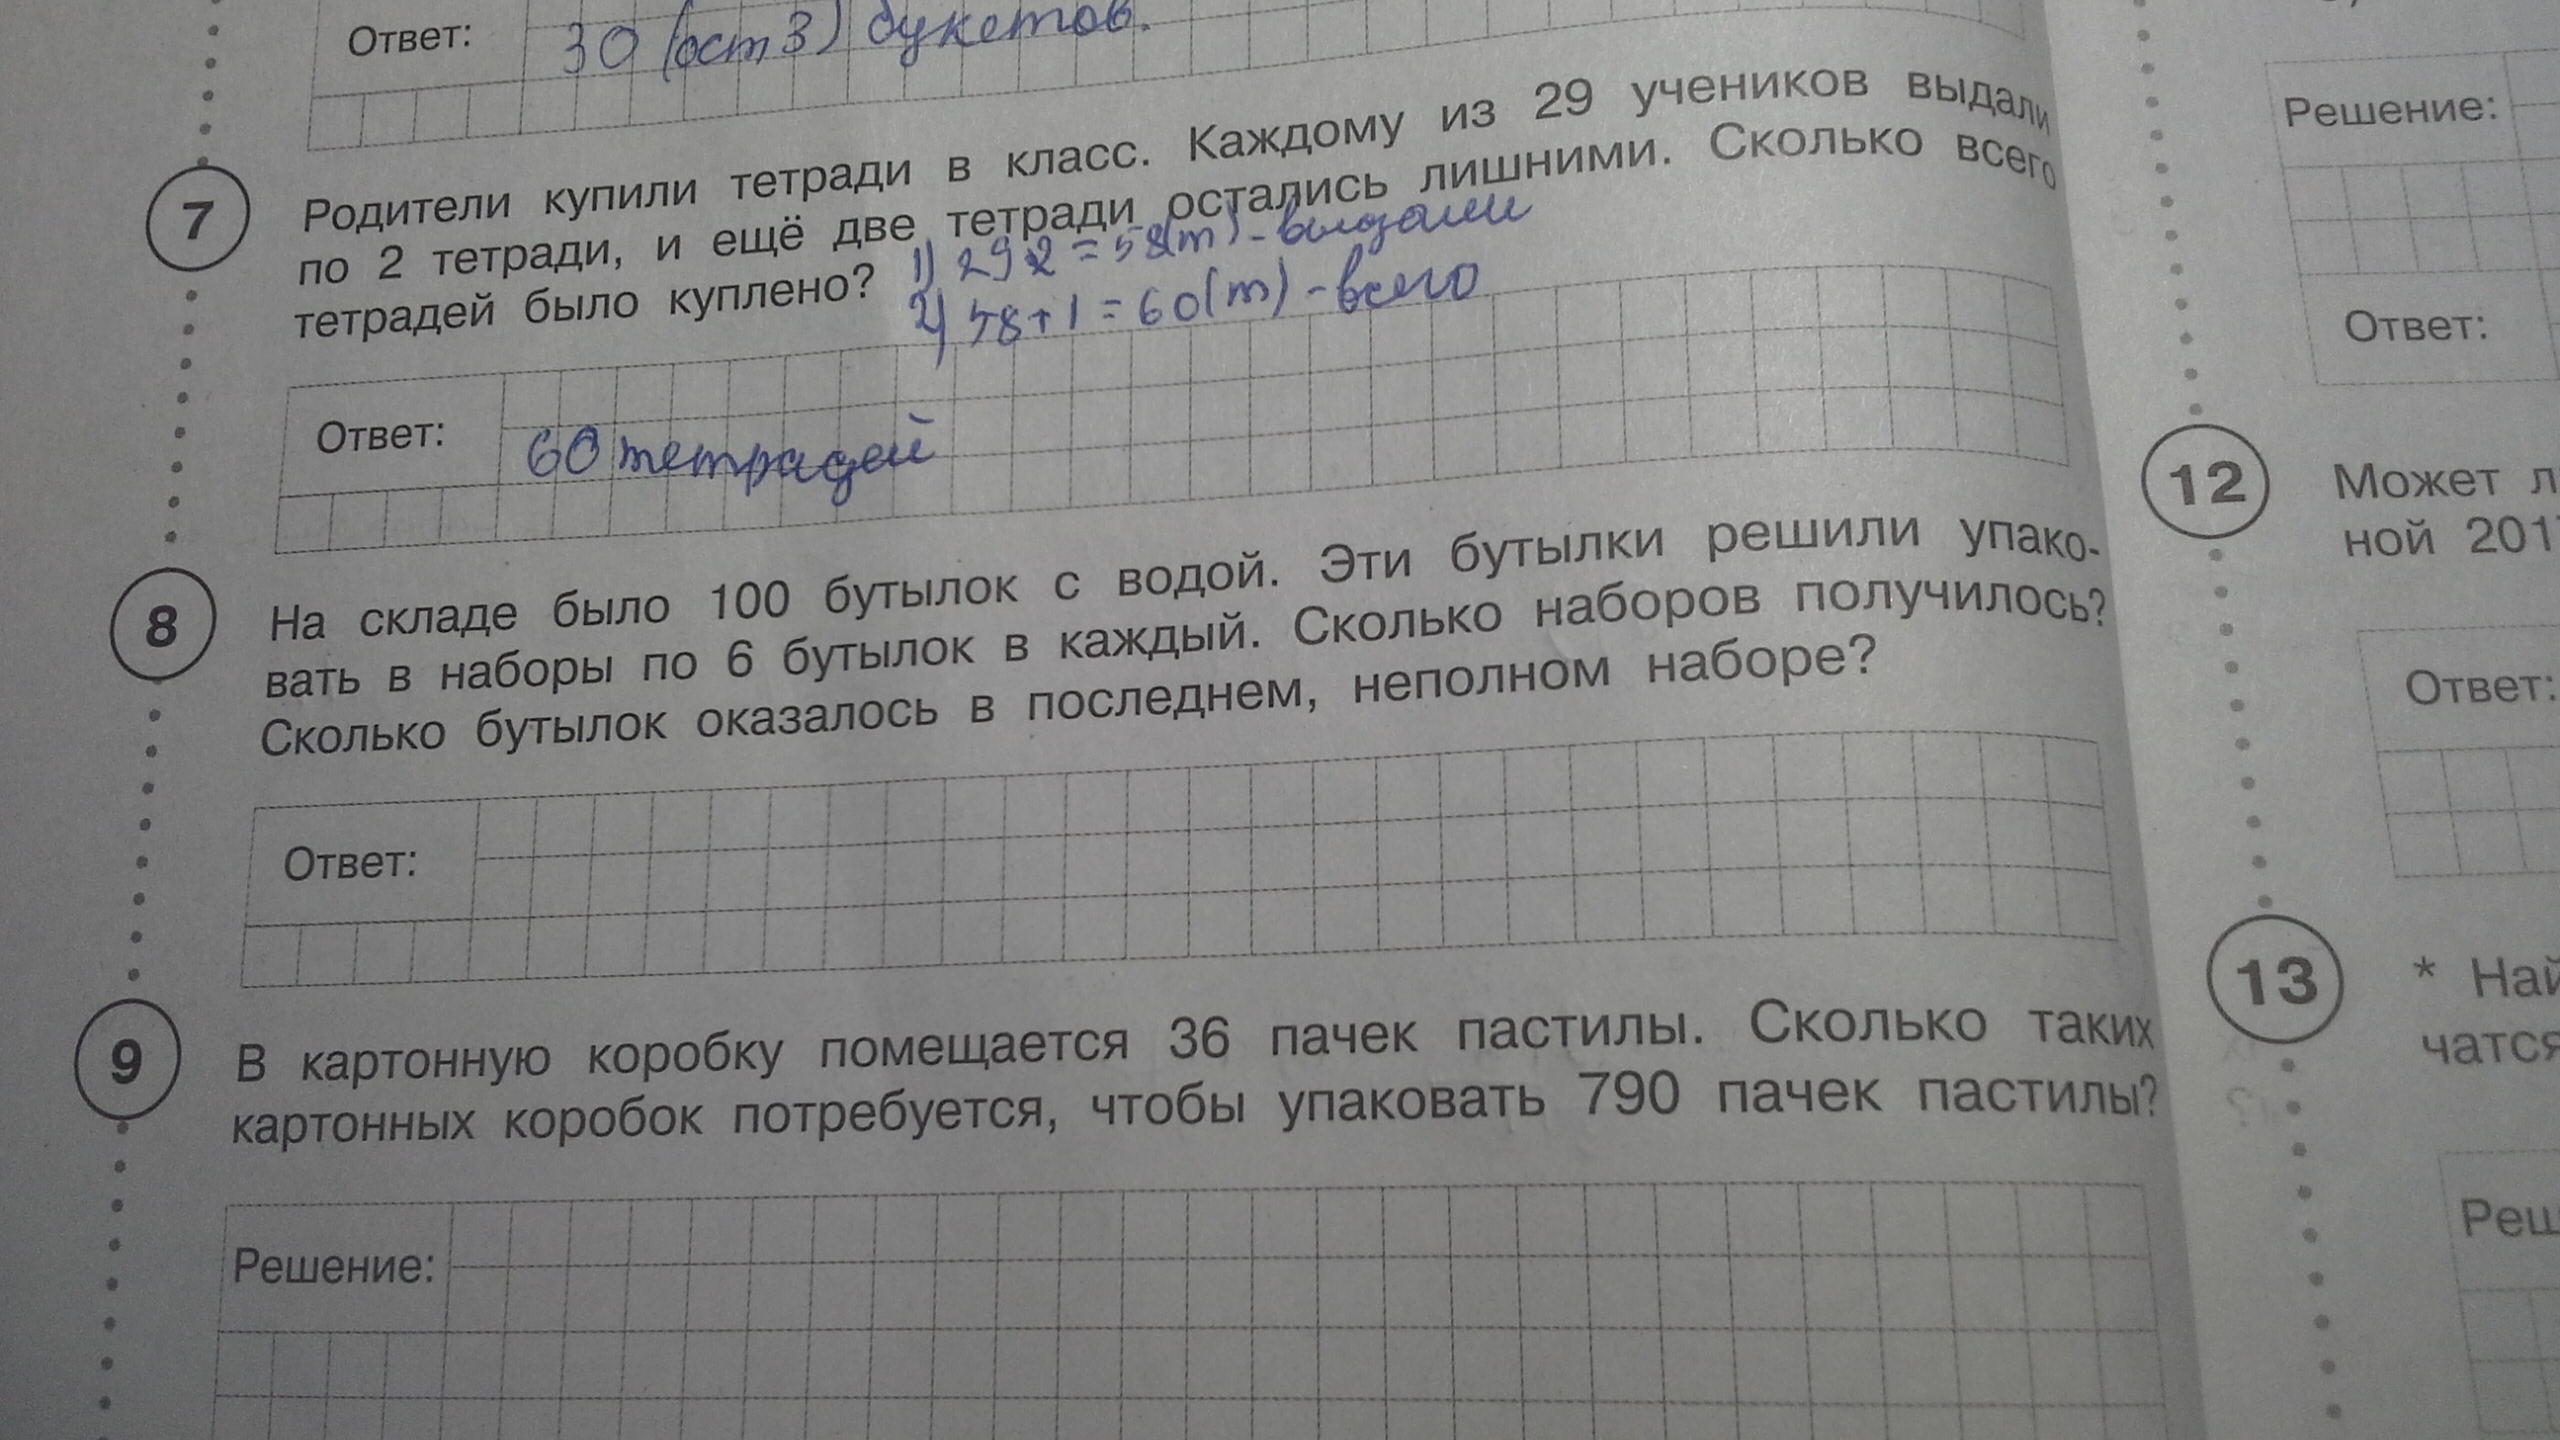 Ответ: 30 (ост 3) букетов.
7 Родители купили тетради в класс. Каждому из 29 учеников выдали
по 2 тетради, и ещё две тетради остались лишними. Сколько всего
тетрадей было куплено?
1) 29 2 = 58(т) - выдали
2) 58+1 = 60(т) - всего
Ответ: 60 тетрадей
8 На складе было 100 бутылок с водой. Эти бутылки решили упако-
вать в наборы по 6 бутылок в каждый. Сколько наборов получилось?
Сколько бутылок оказалось в последнем, неполном наборе?
Ответ:
9 В картонную коробку помещается 36 пачек пастилы. Сколько таких
картонных коробок потребуется, чтобы упаковать 790 пачек пастилы?
Решение:
Решение:
Ответ:
12 Может
ной 201
Ответ:
13 * Най
чатся
Реш